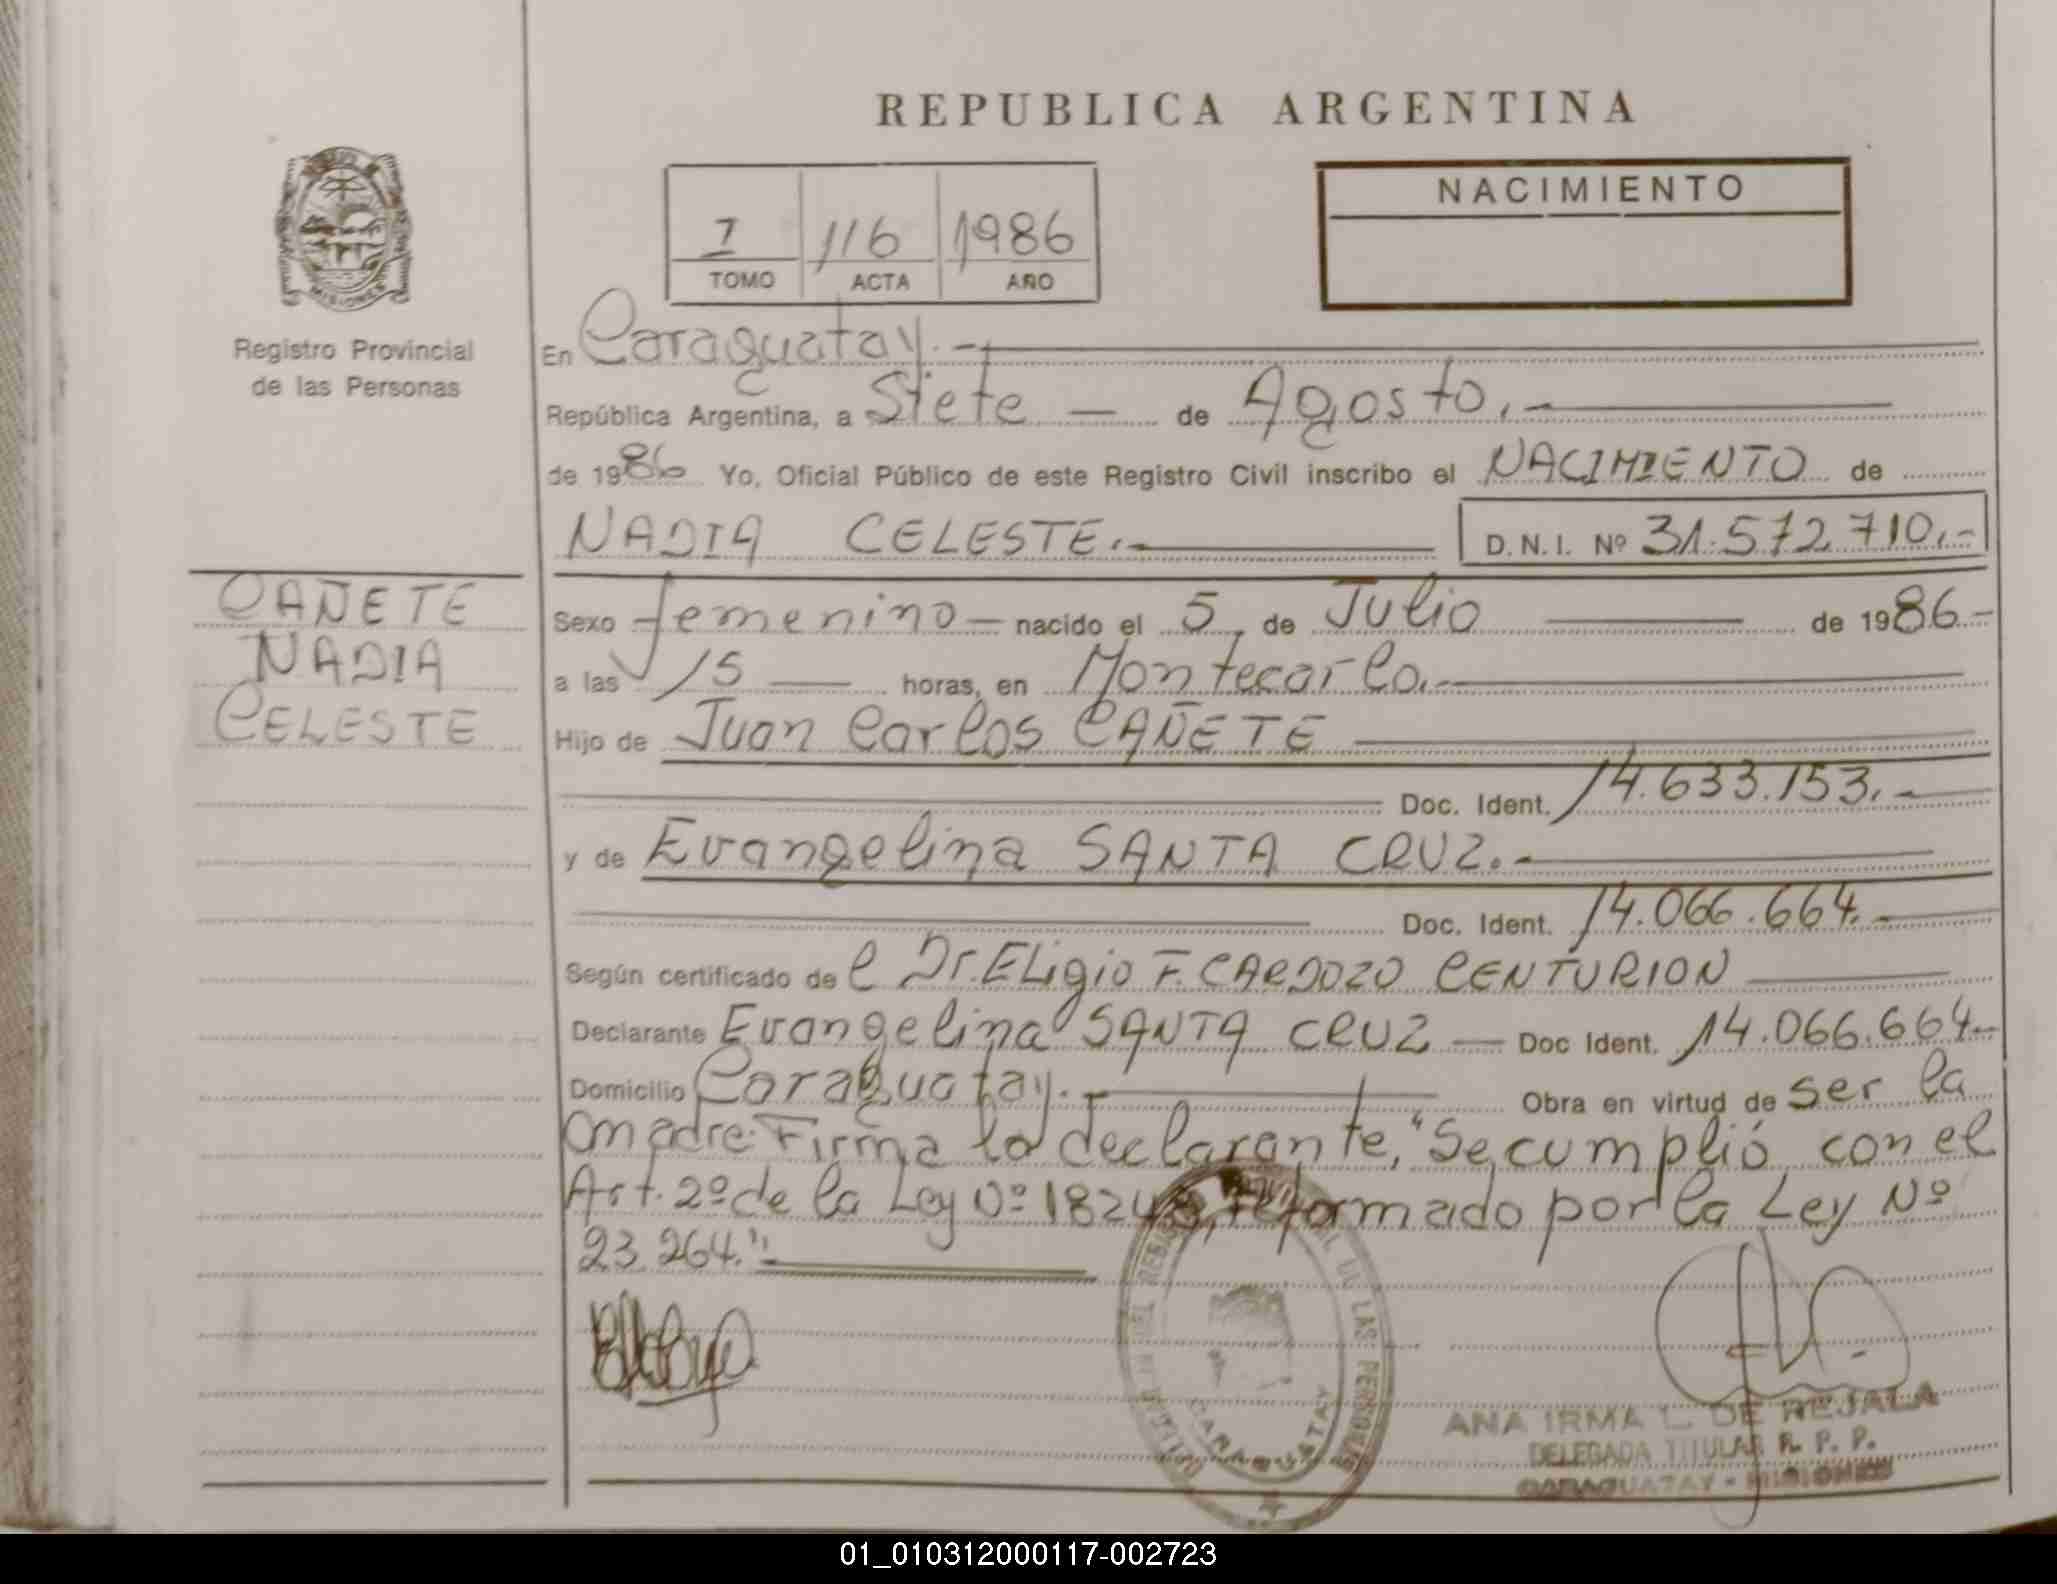 REPUBLICA ARGENTINA
NACIMIENTO
I 116 1986
TOMO ACTA AÑO
MISIONES
Registro Provincial
de las Personas
En Caraguatay.-
República Argentina, a Siete — de Agosto.-
de 1986 Yo, Oficial Público de este Registro Civil inscribo el NACIMIENTO de
NADIA CELESTE.- D.N.I. Nº 31.572.710.-
CAÑETE
NADIA
CELESTE
Sexo femenino — nacido el 5 de Julio — de 1986-
a las 15 — horas, en Montecarlo.-
Hijo de Juan Carlos CAÑETE
Doc. Ident. 14.633.153.-
y de Evangelina SANTA CRUZ.-
Doc. Ident. 14.066.664.-
Según certificado de l Dr. ELigio F. CARDOZO CENTURION
Declarante Evangelina SANTA CRUZ — Doc Ident. 14.066.664-
Domicilio Caraguatay.- Obra en virtud de ser la
madre. Firma la declarante, "Se cumplió con el
Art. 2º de la Ley Nº 18248, reformado por la Ley Nº
23.264."
REGISTRO PROVINCIAL DE LAS PERSONAS
CARAGUATAY
ANA IRMA L. DE REJALA
DELEGADA TITULAR R. P. P.
CARAGUATAY - MISIONES
01_010312000117-002723